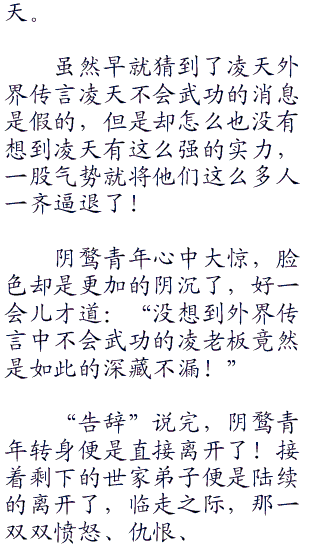 天。
虽然早就猜到了凌天外
界传言凌天不会武功的消息
是假的，但是却怎么也没有
想到凌天有这么强的实力，
一股气势就将他们这么多人
一齐逼退了！
阴鹜青年心中大惊，脸
色却是更加的阴沉了，好一
会儿才道：“没想到外界传
言中不会武功的凌老板竟然
是如此的深藏不漏！”
“告辞”说完，阴鹜青
年转身便是直接离开了！接
着剩下的世家弟子便是陆续
的离开了，临走之际，那一
双双愤怒、仇恨、